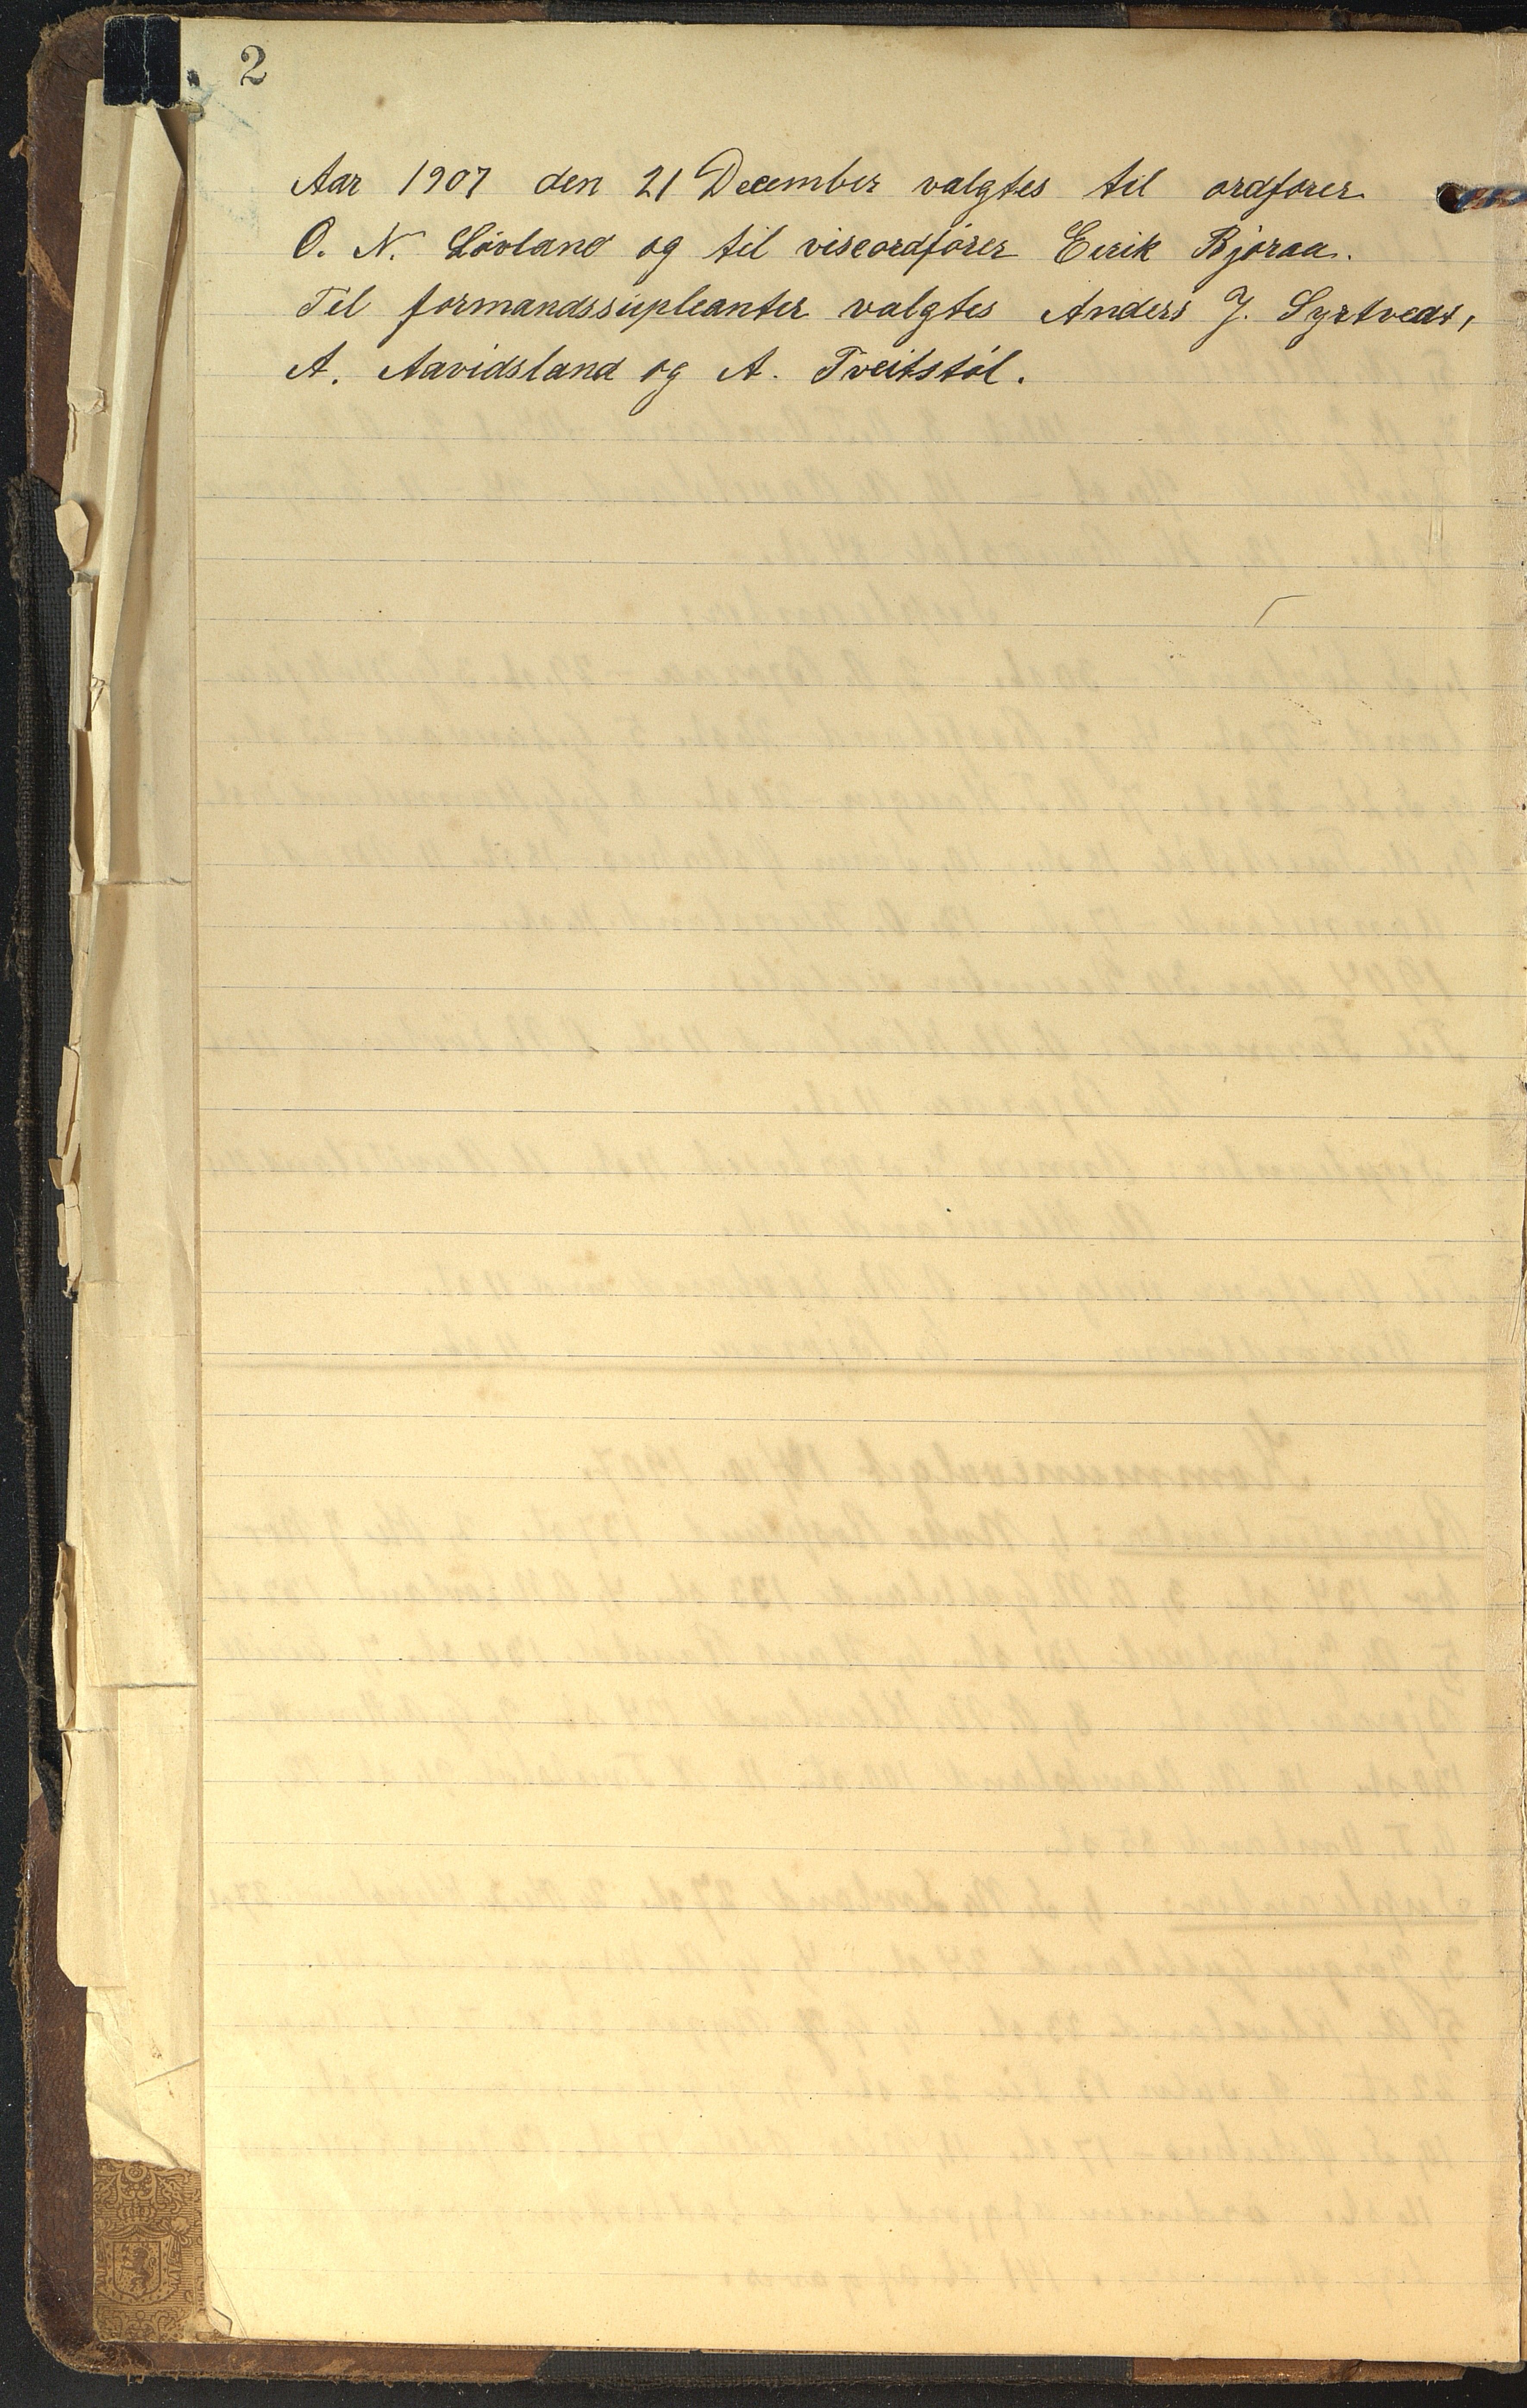 2
Aar 1907 den 21 December valgtes til ordfører
O. N. Lövland og til viseordförer Eirik Bjoraa.
Til formandssupleanter valgtes Anders J. Syrtvedt,
A. Aavidsland og A. Tveitstöl.